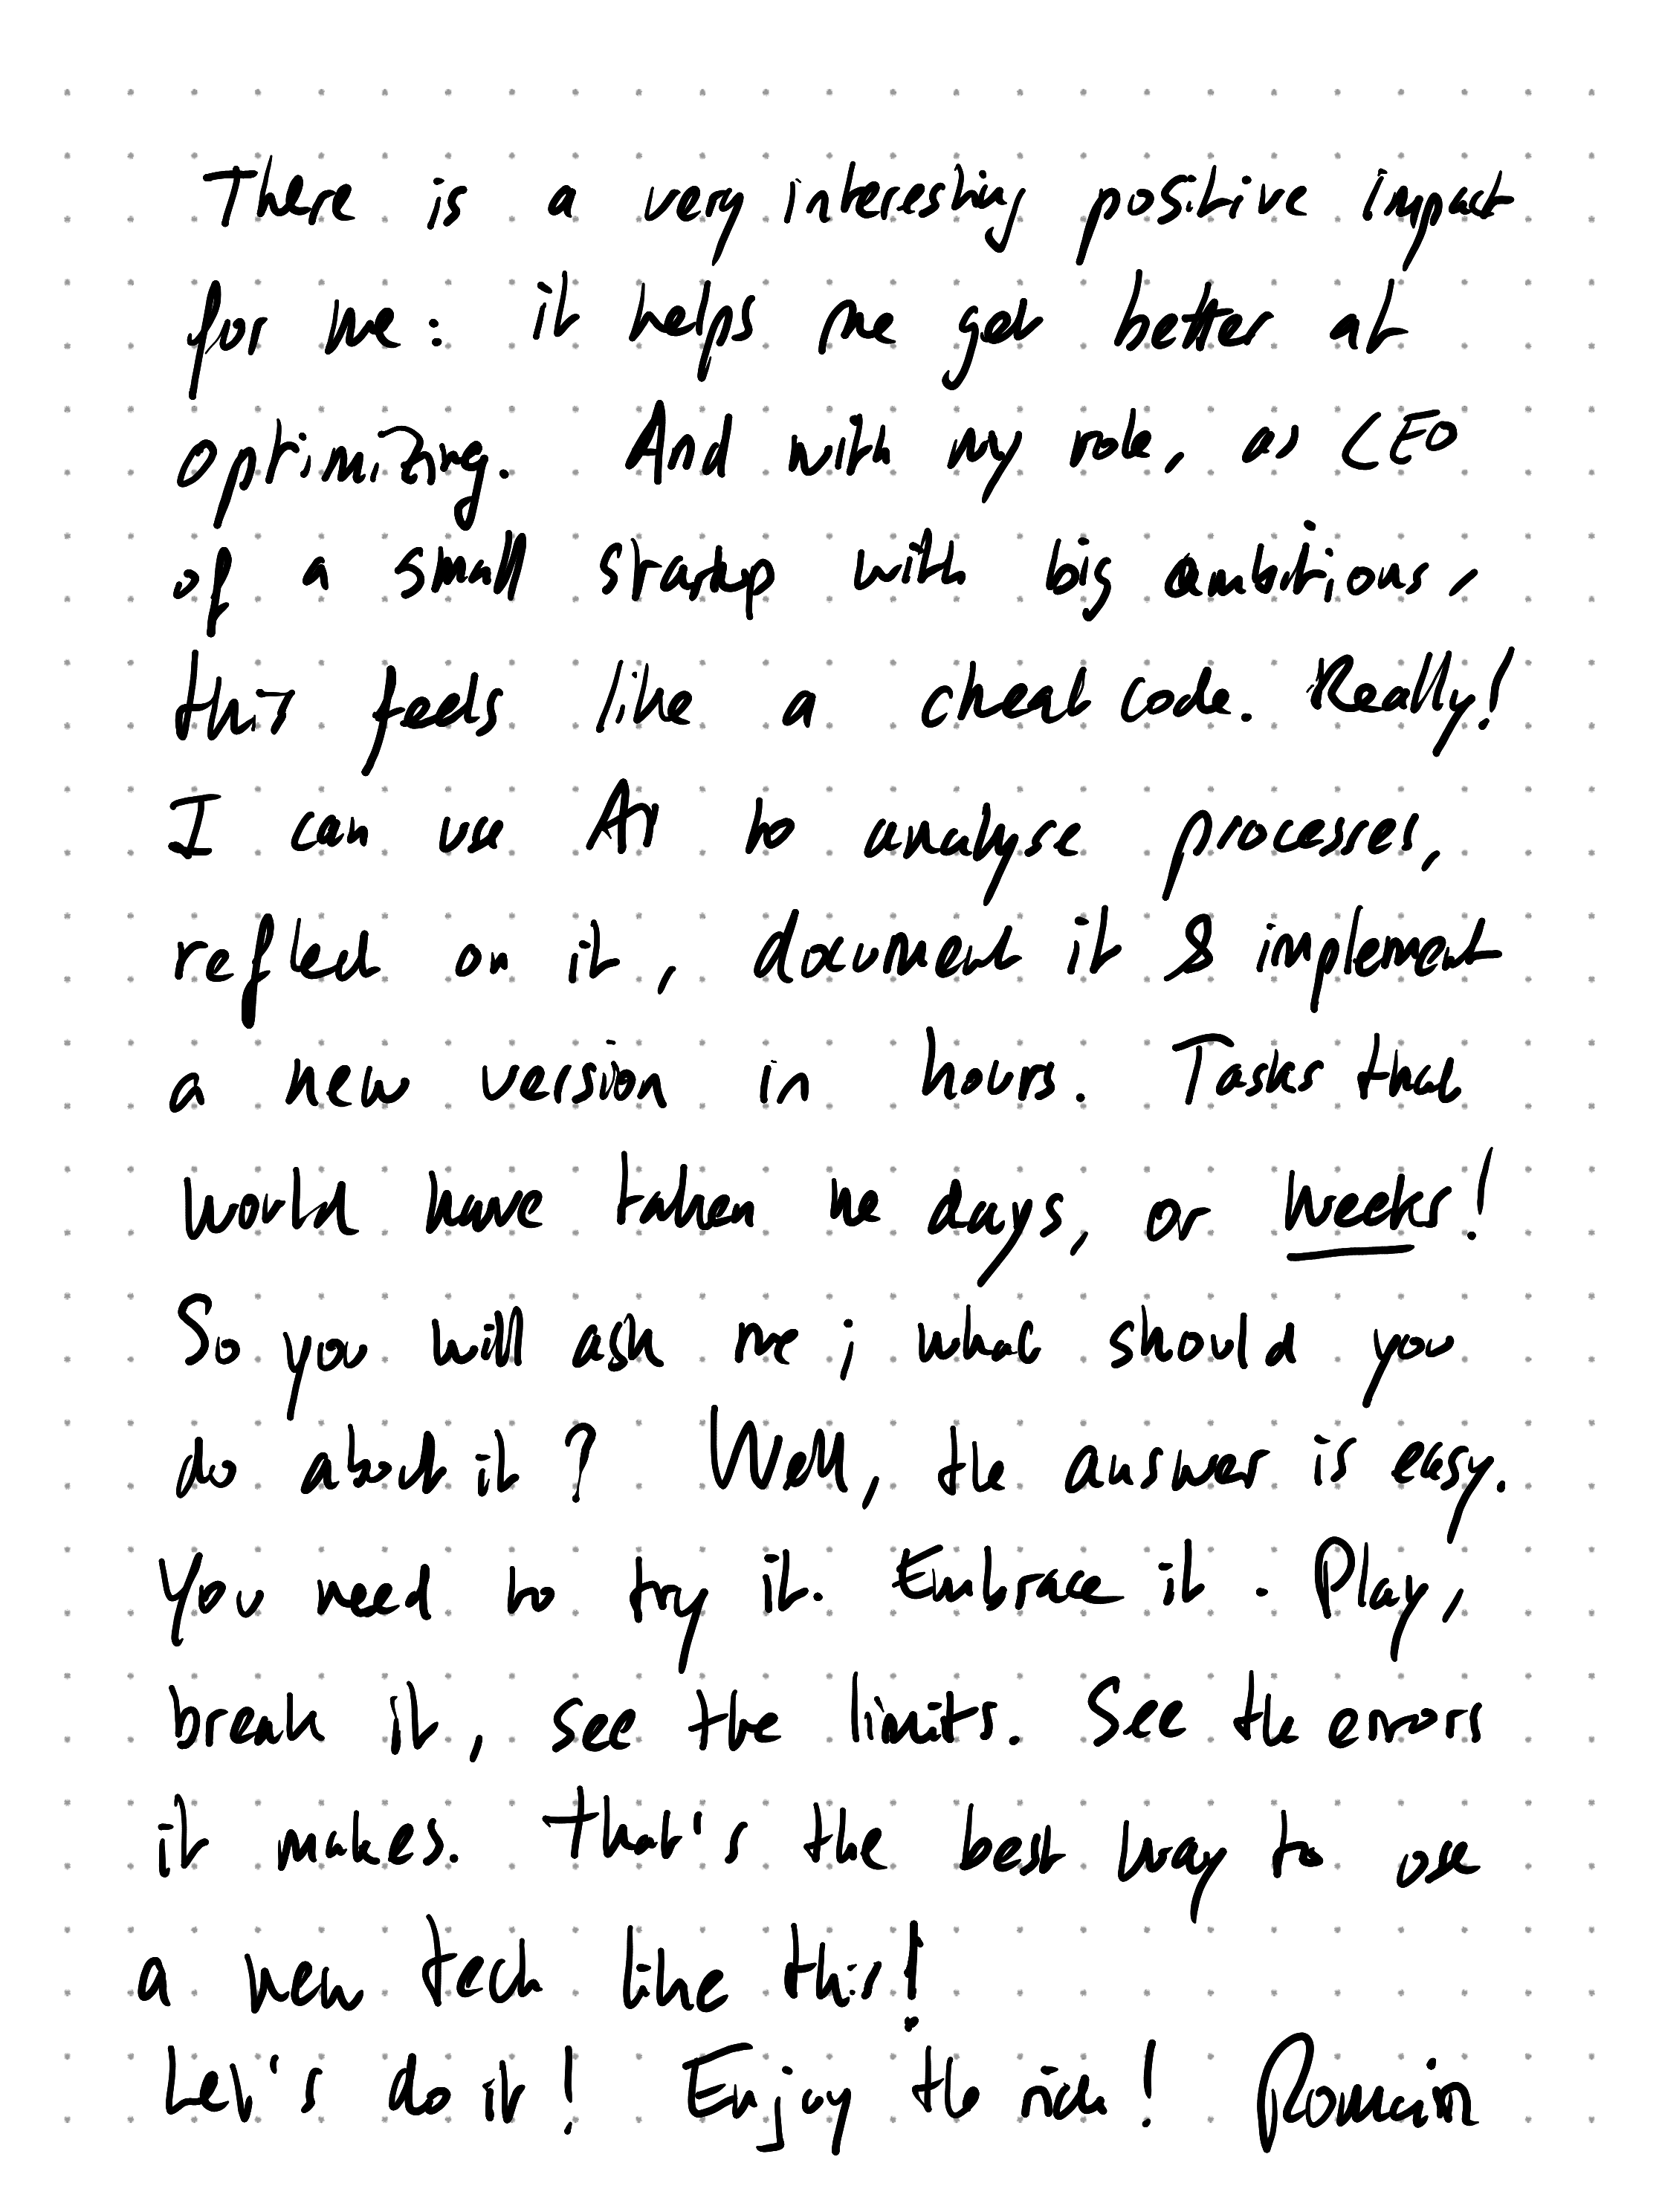 There is a very interesting positive impact
for me: it helps me get better at
optimizing. And with my role, as CEO
of a small startup with big ambitions,
this feels like a cheat code. Really!
I can use AI to analyse processes,
reflect on it, document it & implement
a new version in hours. Tasks that
would have taken me days, or weeks!
So you will ask me; what should you
do about it? Well, the answer is easy.
You need to try it. Embrace it. Play,
break it, see the limits. See the errors
it makes. That's the best way to use
a new tech like this!
Let's do it! Enjoy the ride! Romain